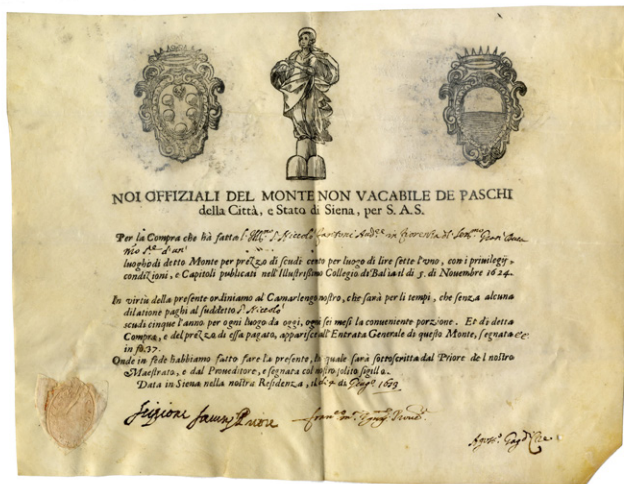 NOI OFFIZIALI DEL MONTE NON VACABILE DE PASCHI
della Città, e Stato di Siena, per S. A. S.
Per la Compra che hà fatta l' Ill. S. Niccolò in Fiorenza
luoghi di detto Monte per prezzo di scudi cento per luogo di lire sette l'uno, con i privilegij
condizioni, e Capitoli publicati nell'Illustrissimo Collegio di Balia il di 5. di Novembre 1624.
In virtù della presente ordiniamo al Camarlengo nostro, che sarà per li tempi, che senza alcuna
dilatione paghi al suddetto S. Niccolò
scudi cinque l'anno per ogni luogo da oggi, ogni sei mesi la conveniente porzione. Et di detta
Compra, e del prezzo di essa pagato, apparisce all'Entrata Generale di questo Monte, segnata
in fo. 37.
Onde in fede habbiamo fatto fare la presente, la quale sarà sottoscritta dal Priore del nostro
Maestrato, e dal Proveditore, e segnata col nostro solito sigillo.
Data in Siena nella nostra Residenza, il di 4 di
Priore